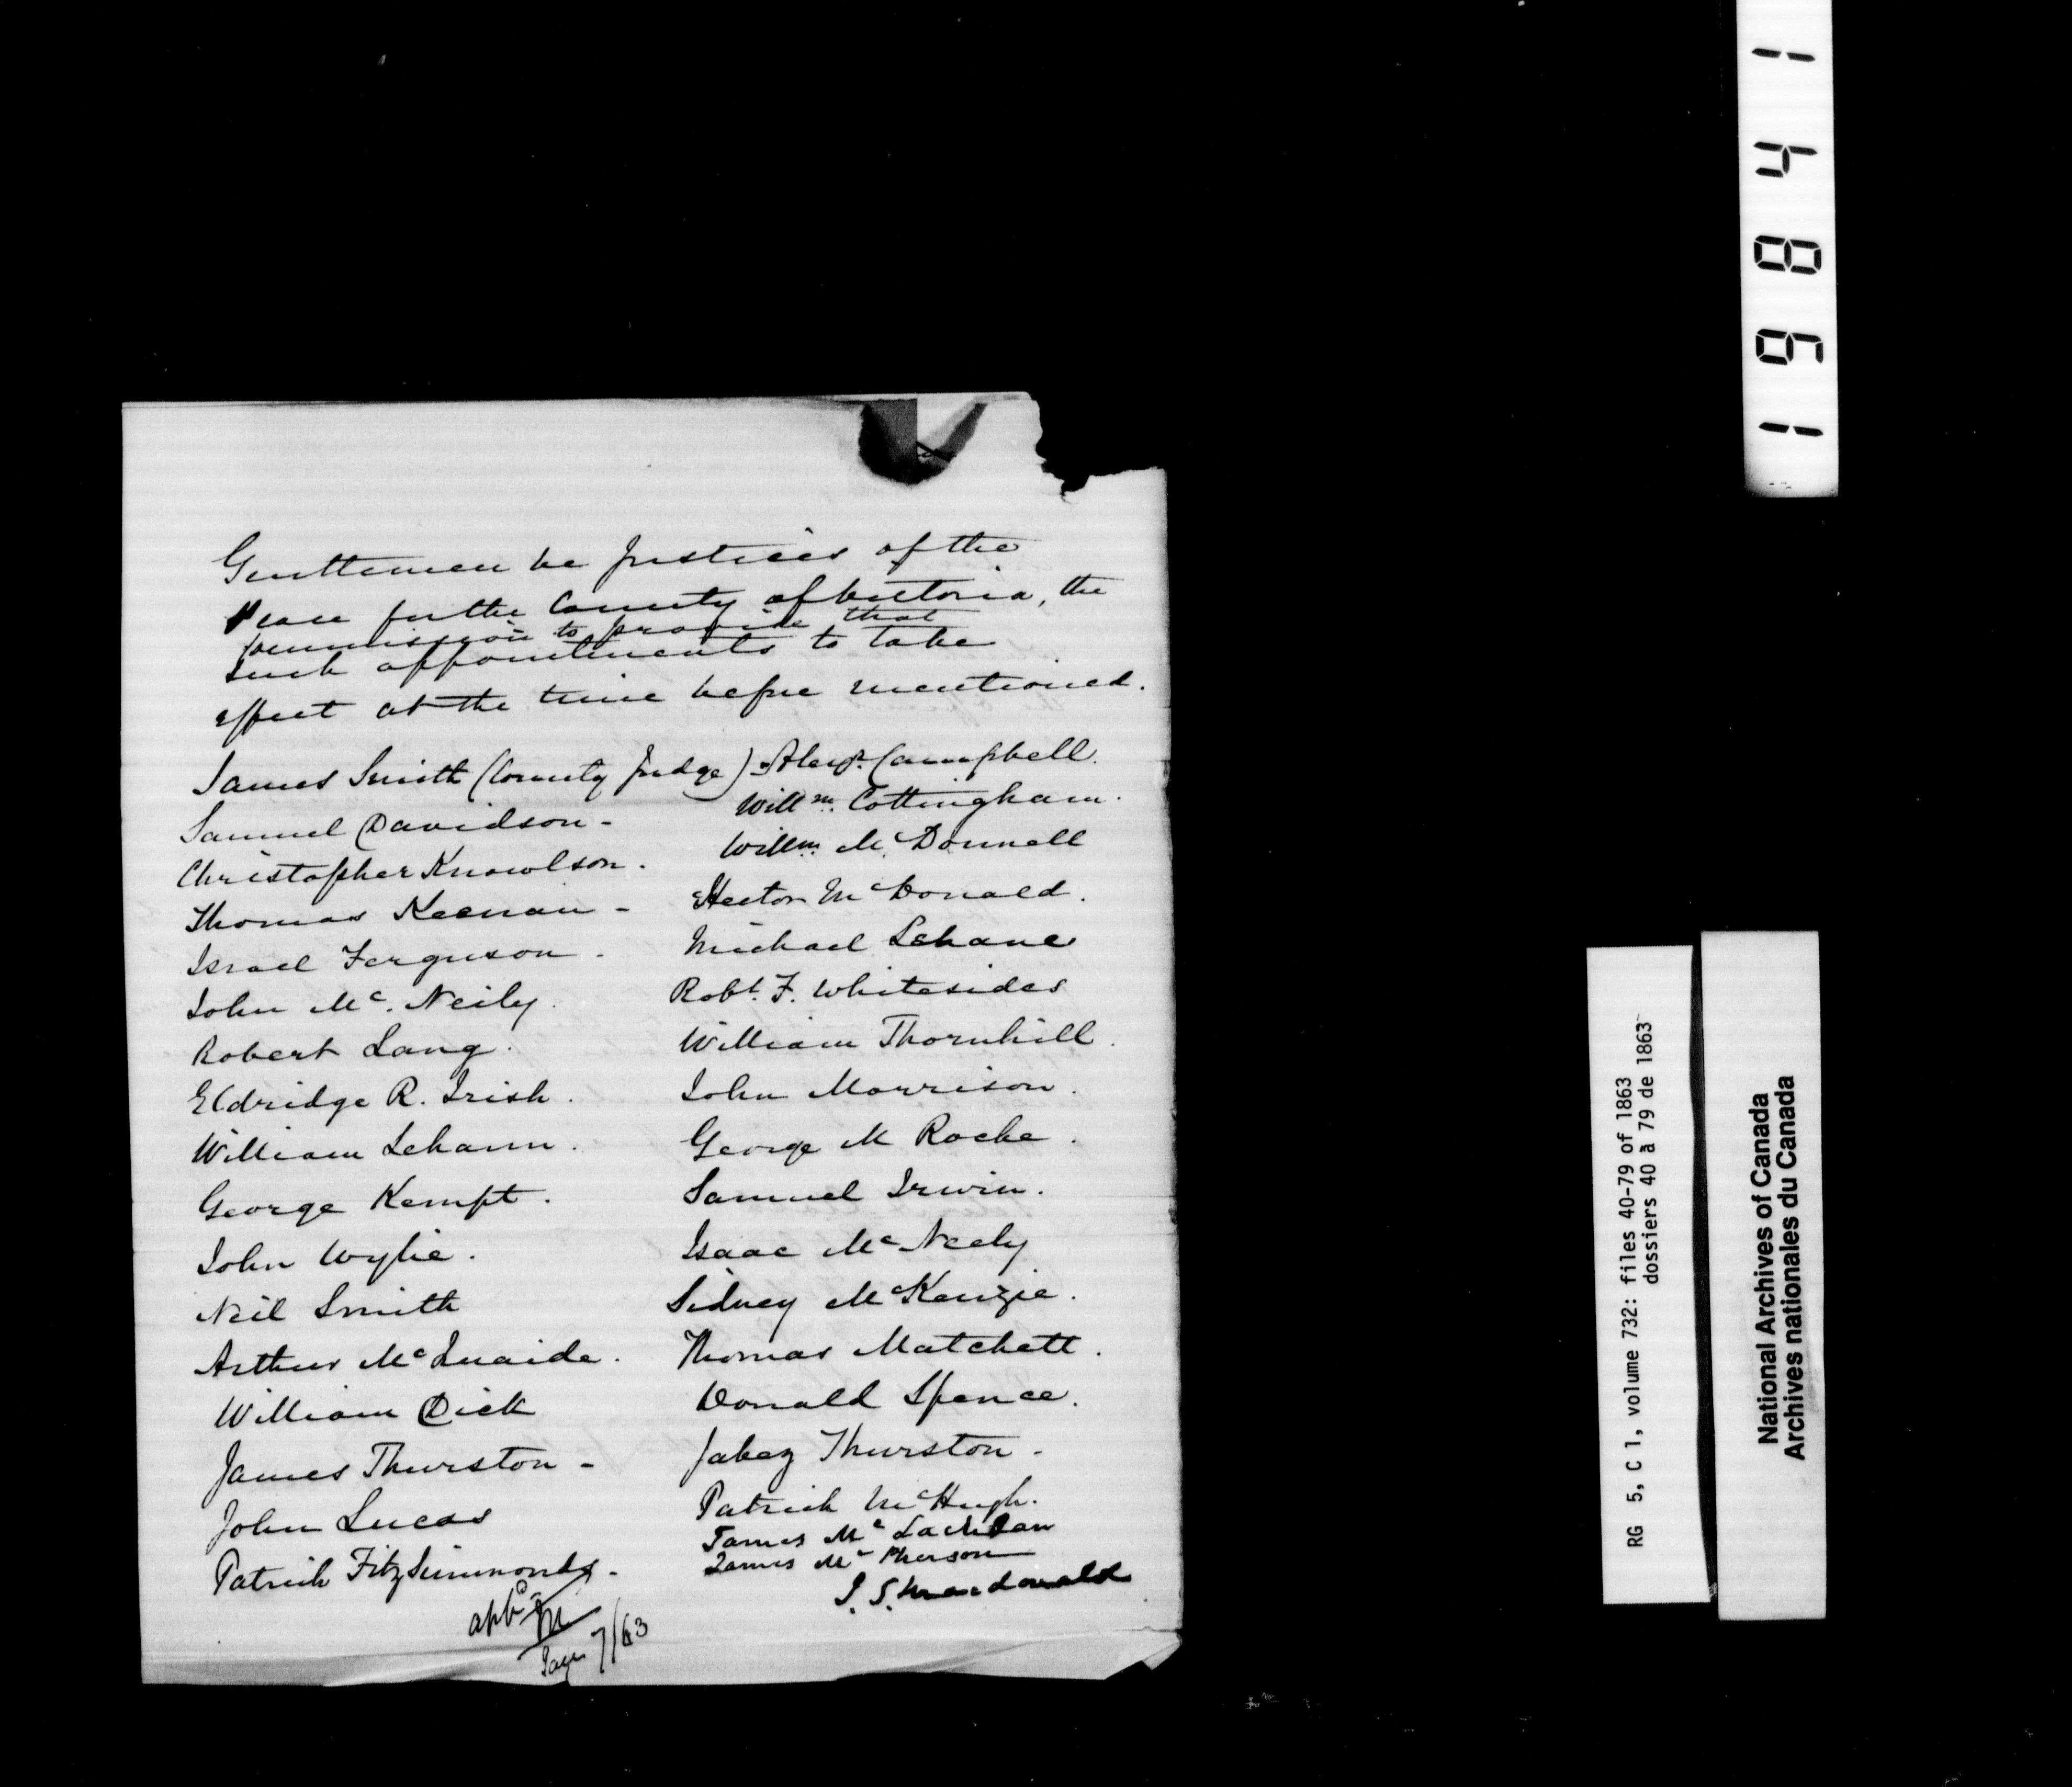 Gentlemen be Justices of the
Peace for the County of Victoria, the
commission to provide that
such appointments to take
effect at the time before mentioned.
James Smith (County Judge)
Samuel Davidson -
Christopher Knowlson .
Thomas Keenan -
Israel Ferguson .
John Mc. Neily .
Robert Lang .
Eldridge R. Irish .
William Lehann .
George Kempt .
John Wylie .
Neil Smith
Arthur McQuaide .
William Dick
James Thurston -
John Lucas
Patrick FitzSimmonds -
Alexr. Campbell .
Willm. Cottingham .
Willm. McDonnell
Hector McDonald .
Michael Lehane
Robt. F. Whitesides
William Thornhill .
John Morrison .
George M Roche .
Samuel Irwin .
Isaac McNeely
Sidney McKenzie .
Thomas Matchett .
Donald Spence .
Jabez Thurston -
Patrick McHugh .
James Mc Lachlan
James Mc Pherson
J. S. Macdonald
Jan 7/63
1 4 8 9 1
RG 5, C 1, volume 732: files 40-79 of 1863
dossiers 40 à 79 de 1863
National Archives of Canada
Archives nationales du Canada